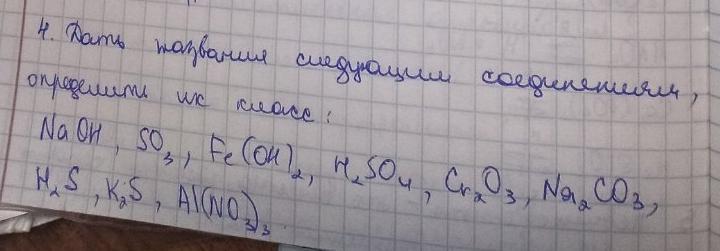 4. Дать названия следующим соединениям,
определить их класс:
NaOH, SO₃, Fe(OH)₂, H₂SO₄, Cr₂O₃, Na₂CO₃,
H₂S, K₂S, Al(NO₃)₃.